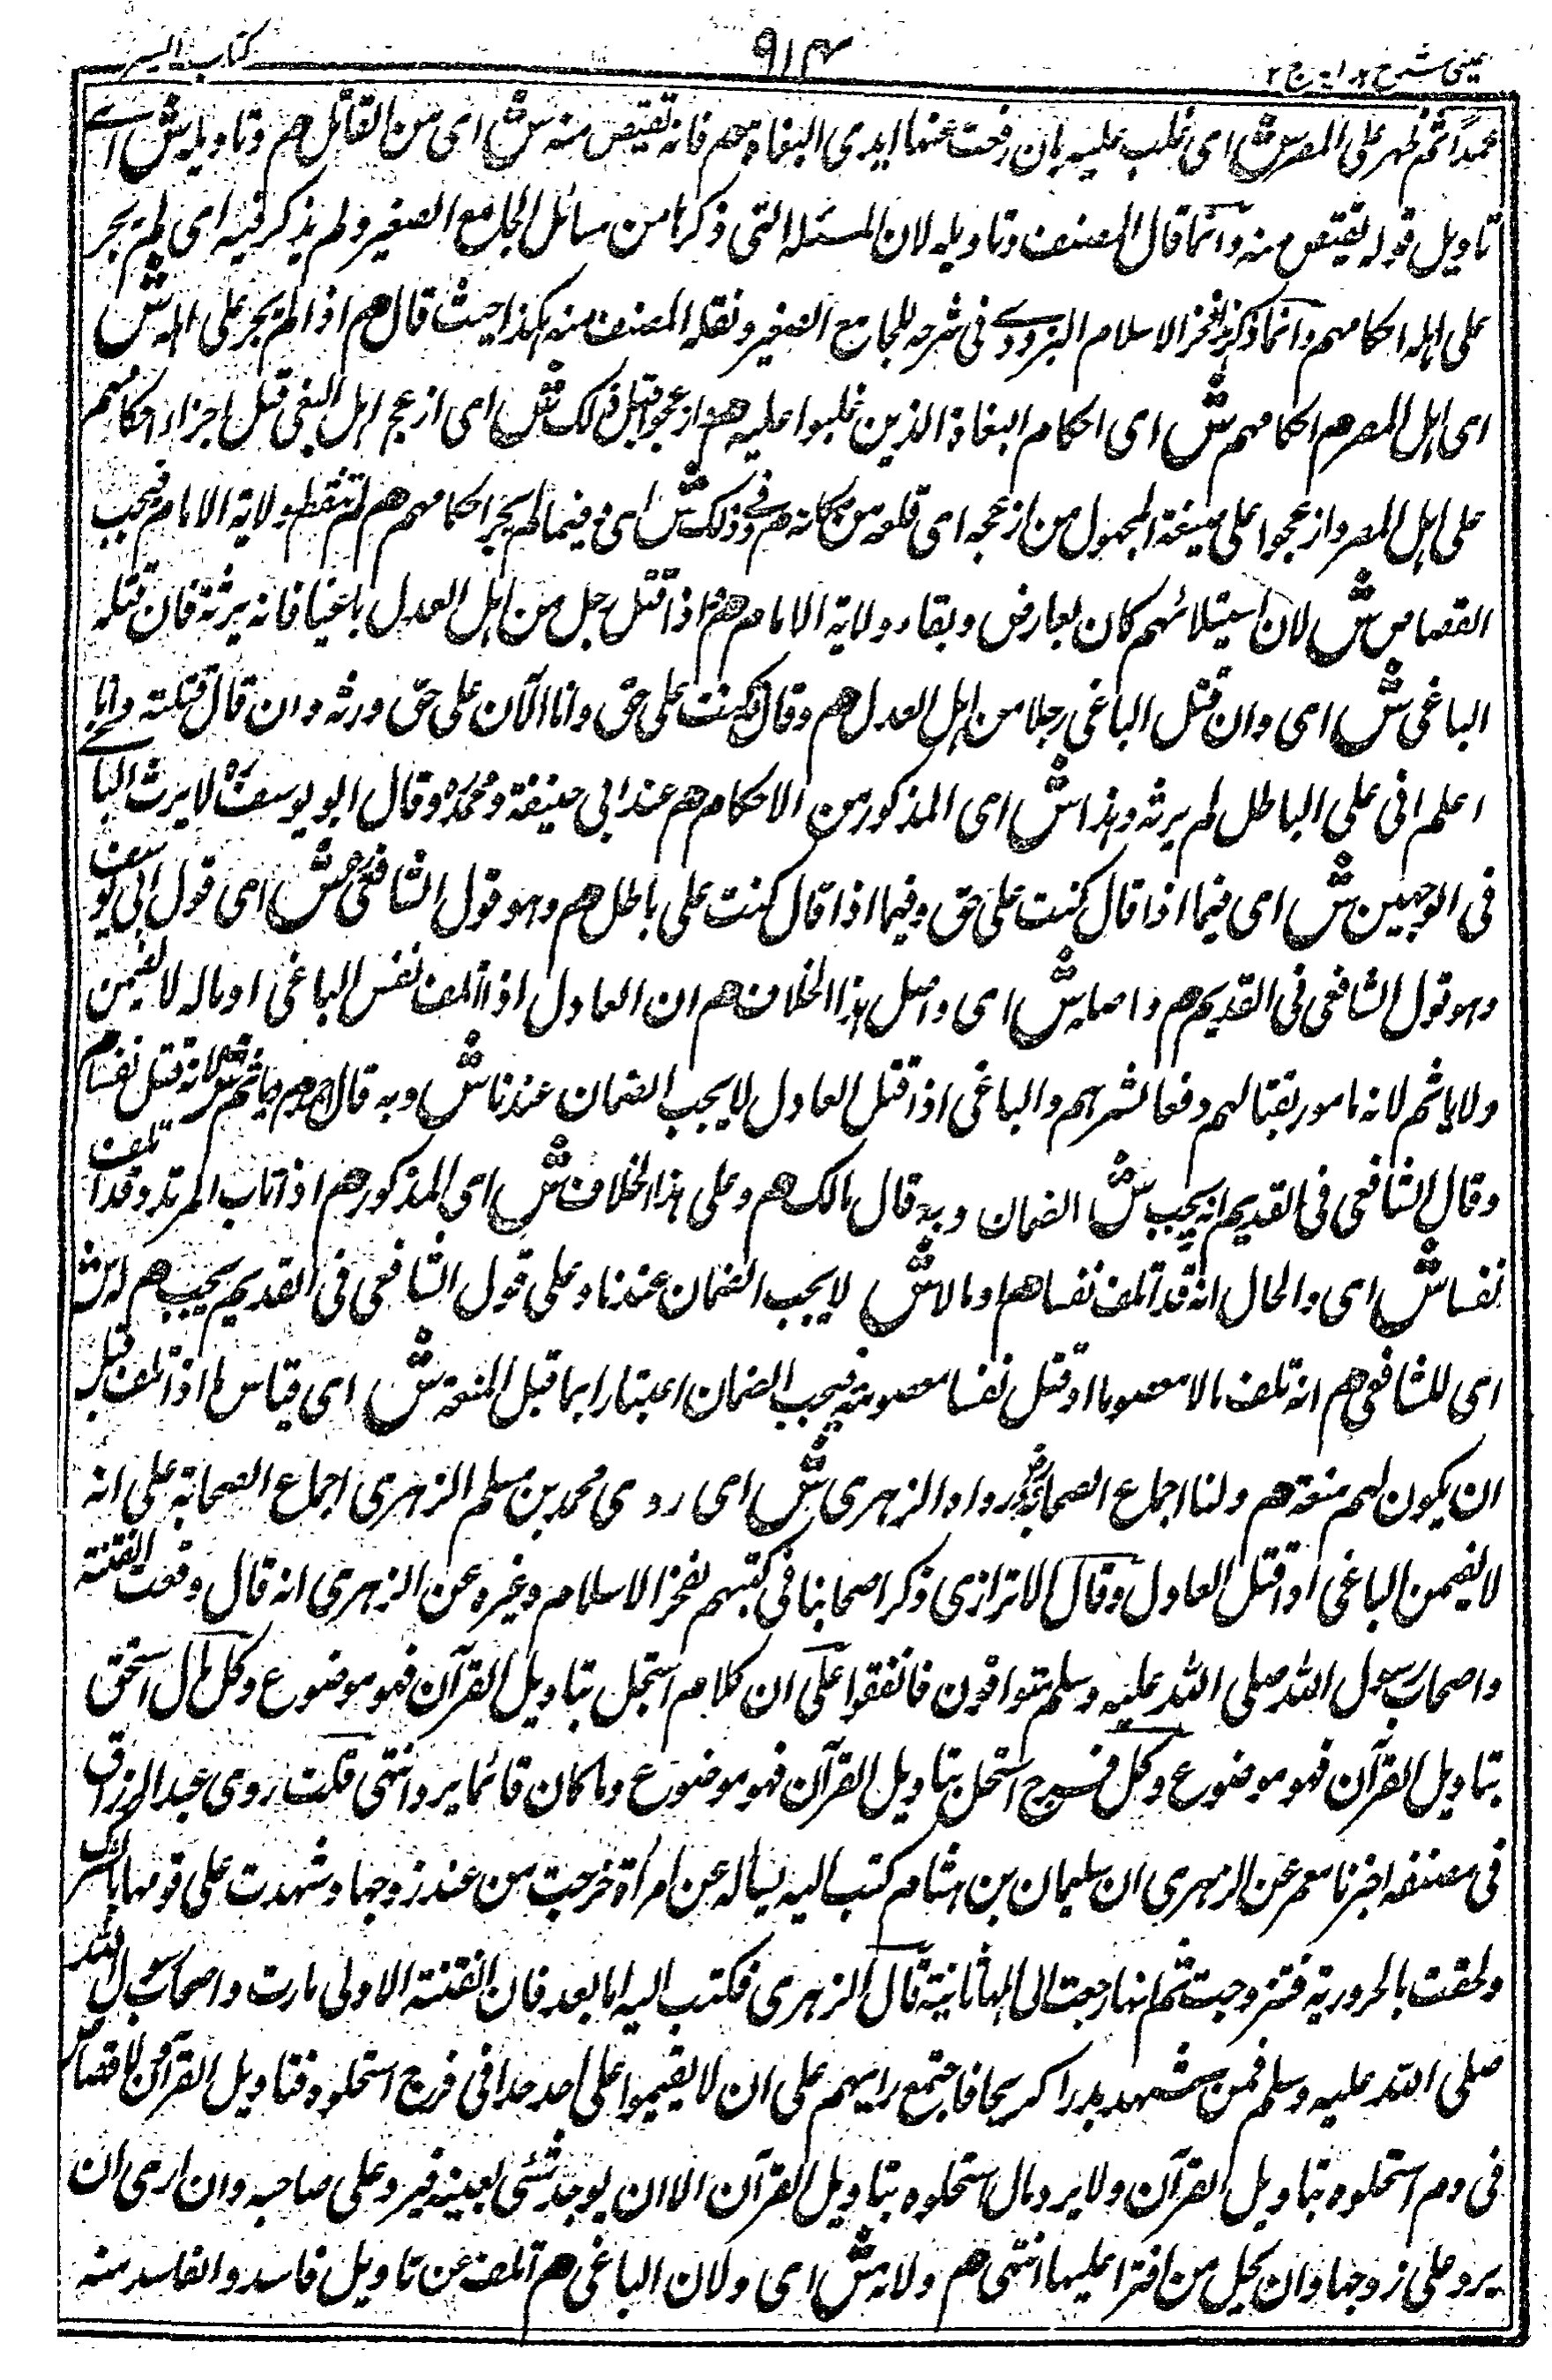 عینی شرح ہدایہ ج ۲ ۹۱۴ کتاب السیر
عمداً ثم ظہر علی المصر ش ای غلب علیہ بان رفعت عنہا ایدی البغاۃ م فانہ یقتص منہ ش ای من القاتل ھم وتاویلہ ش اے
تاویل قولہ یقتص منہ وانما قال المصنف وتاویلہ لان المسئلۃ التی ذکرہا من مسائل الجامع الصغیر ولم یذکر فیہ ای لم یجر
علی اہلہ احکامہم وانما ذکرہ فخر الاسلام البزدوے فی شرحہ للجامع الصغیر ونقلہ المصنف منہ ہکذا حیث قال ھم اذا لم یجر علی اہلہ ش
ای اہل المصر ھم احکامہم ش ای احکام البغاۃ الذین غلبوا علیہ ھم وازعجوا قبل ذلک ش ای ازعج اہل البغی قبل اجراء احکامہم
علی اہل المصر وازعجوا علی صیغۃ المجہول من ازعجہ ای قلعہ من مکانہ ھم وفے ذلک ش ای فیما لم یجر احکامہم ھم لم تنقطع ولایۃ الامام فیجب
القصاص ش لان استیلائہم کان بعارض وبقاء ولایۃ الامام ھم واذا قتل رجل من اہل العدل باغیا فانہ یرثہ فان قتلہ
الباغی ش ای وان قتل الباغی رجلا من اہل العدل ھم وقال کنت علی حق وانا الآن علی حق ورثہ وان قال قتلتہ وانا
اعلم انی علی الباطل لم یرثہ وہذا ش ای المذکور من الاحکام ھم عند ابی حنیفۃ ومحمدؒ وقال ابو یوسفؒ لا یرث الباغے
فی الوجہین ش ای فیما اذا قال کنت علی حق وفیما اذا قال کنت علی باطل ھم وہو قول الشافعیؒ ش ای قول ابی یوسف
وہو قول الشافعی فی القدیم ھم واصلہ ش ای واصل ہذا الخلاف ھم ان العادل اذا اتلف نفس الباغی او مالہ لا یضمن
ولا یاثم لانہ مامور بقتالہم دفعا لشرہم والباغی اذا قتل العادل لا یجب الضمان عندنا ش وبہ قال احمد ھم ویاثم ش لانہ قتل نفسا م
وقال الشافعی فی القدیم انہ یجب ش الضمان وبہ قال مالک ھم وعلی ہذا الخلاف ش ای المذکور ھم اذا تاب المرتد وقد اتلف
نفسا ش ای والحال انہ قد اتلف نفسا ھم او مالا ش لا یجب الضمان عندنا وعلی قول الشافعی فی القدیم یجب ھم لہ ش
ای للشافعی ھم انہ تلف مالا معصوما او قتل نفسا معصومۃ فیجب الضمان اعتبارا بما قبل المنعۃ ش ای قیاس لما اذا اتلف قبل
ان یکون لہم منعۃ ھم ولنا اجماع الصحابۃؓ رواہ الزہری ش ای روی محمد بن مسلم الزہری اجماع الصحابۃ علی انہ
لا یضمن الباغی اذا قتل العادل وقال الاترازی ذکر اصحابنا فی کتبہم کفخر الاسلام وغیرہ عن الزہری انہ قال وقعت الفتنۃ
واصحاب رسول اللہ صلی اللہ علیہ وسلم متوافرون فاتفقوا علی ان کل دم استحل بتاویل القرآن فہو موضوع وکل مال استحق
بتاویل القرآن فہو موضوع وکل فرج استحل بتاویل القرآن فہو موضوع وما کان قائما یرد انتہی قلت روی عبد الرزاق
فی مصنفہ اخبرنا معمر عن الزہری ان سلیمان بن ہشام کتب الیہ یسالہ عن امرأۃ خرجت من عند زوجہا وشہدت علی قومہا بالشرک
ولحقت بالحروریۃ فتزوجت ثم انہا رجعت الی اہلہا ثانیۃ قال الزہری فکتب الیہ اما بعد فان الفتنۃ الاولی ثارت واصحاب رسول اللہ
صلی اللہ علیہ وسلم فمن شہد بدرا کثیر فاجتمع رایہم علی ان لا یقیموا علی احد حدا فی فرج استحلوہ فتاویل القرآن ولا قصاص
فی دم استحلوہ بتاویل القرآن ولا یرد مال استحلوہ بتاویل القرآن الا ان یوجد شئی بعینہ فیرد علی صاحبہ وان اری ان
یرد علی زوجہا وان یحل من افترا علیہا انتہی ھم ولانہ ش ای ولان الباغی ھم اتلف عن تاویل فاسد والفاسد منہ